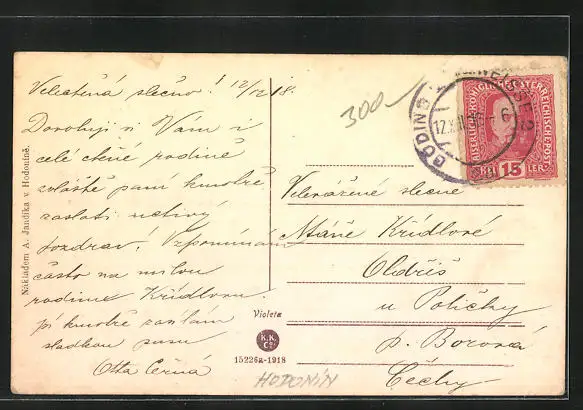 Velectěná slečno! 12/12 18.
Dovoluji si Vám i
celé ctěné rodině
zvláště paní kmotře
zaslati uctivý
pozdrav! Vzpomínám
často na milou
rodinu Křídlovu.
pí kmotře zasílám
sladkou pusu
Otta Černá
Nákladem A. Jandíka v Hodoníně.
Violeta
K.K.
Co
15226a-1918
HODONÍN
300
GÖDING
12.XII.18-6
KAISERLICHE KÖNIGLICHE ÖSTERREICHISCHE POST
15
HELLER
Velevážené slečně
Máně Křídlové
Oldřiš
u Poličky
p. Borová
Čechy